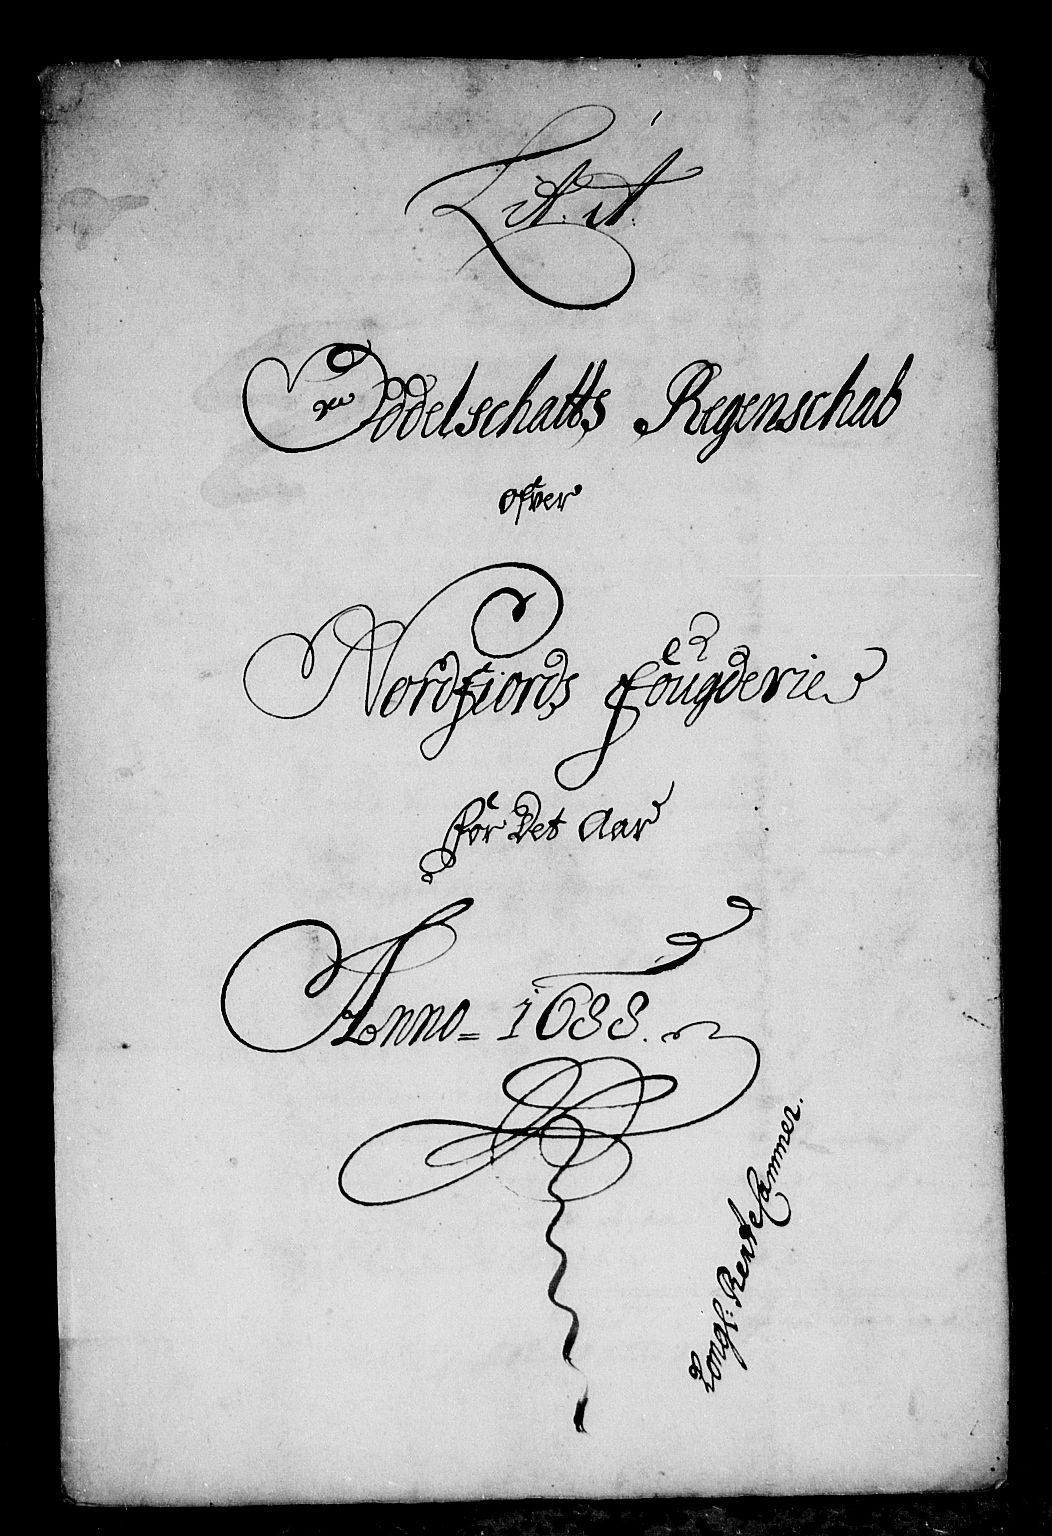 Lit. A.
Oddelschatts Regenschab
ofver
Nordfiords Fougderie
for Det Aar
Anno = 1688.
Kongl: Rente Cammer.